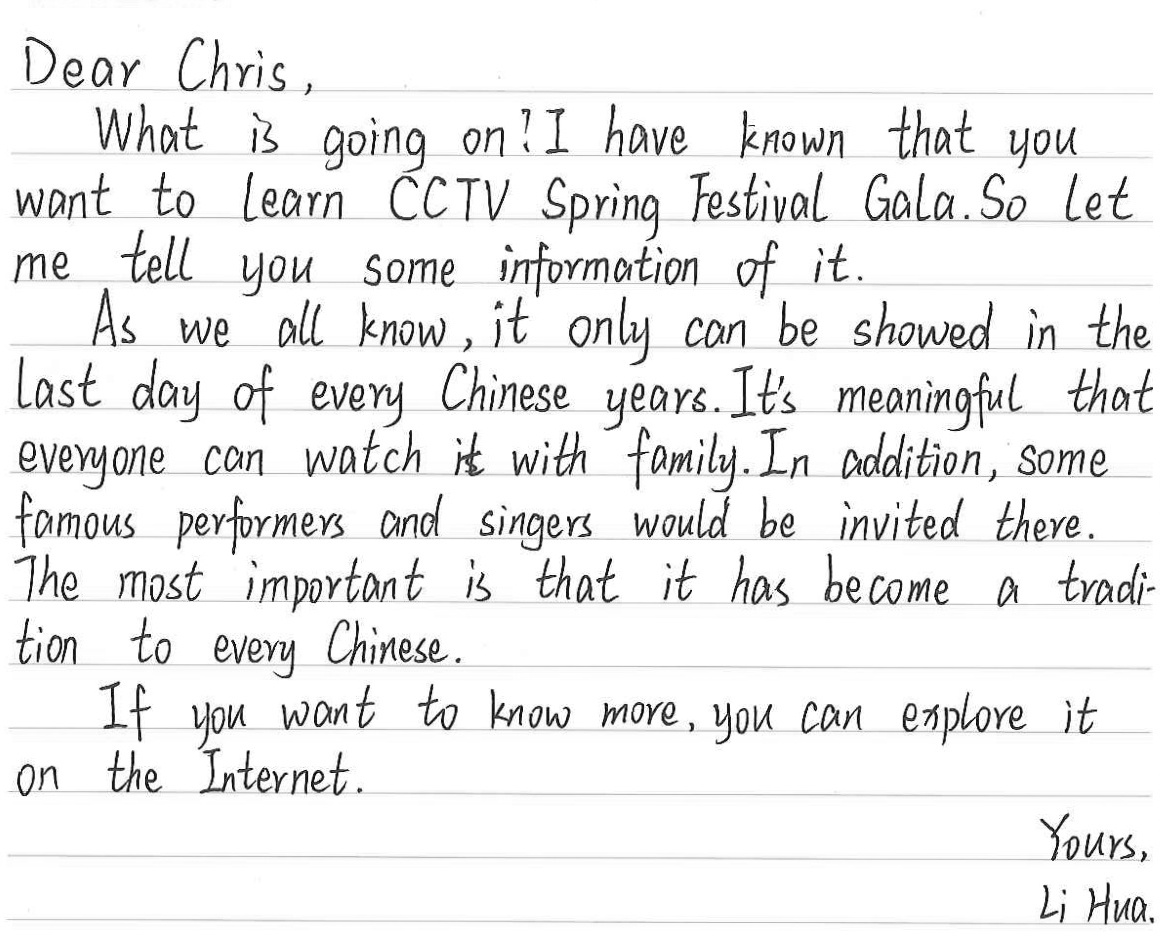 Dear Chris,
What is going on? I have known that you
want to learn CCTV Spring Festival Gala. So let
me tell you some information of it.
As we all know, it only can be showed in the
last day of every Chinese years. It's meaningful that
everyone can watch it with family. In addition, some
famous performers and singers would be invited there.
The most important is that it has become a tradi-
tion to every Chinese.
If you want to know more, you can explore it
on the Internet.
Yours,
Li Hua.